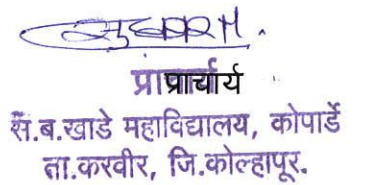 प्राचार्य
स.ब.खाडे महाविद्यालय, कोपार्डे
ता.करवीर, जि.कोल्हापूर.